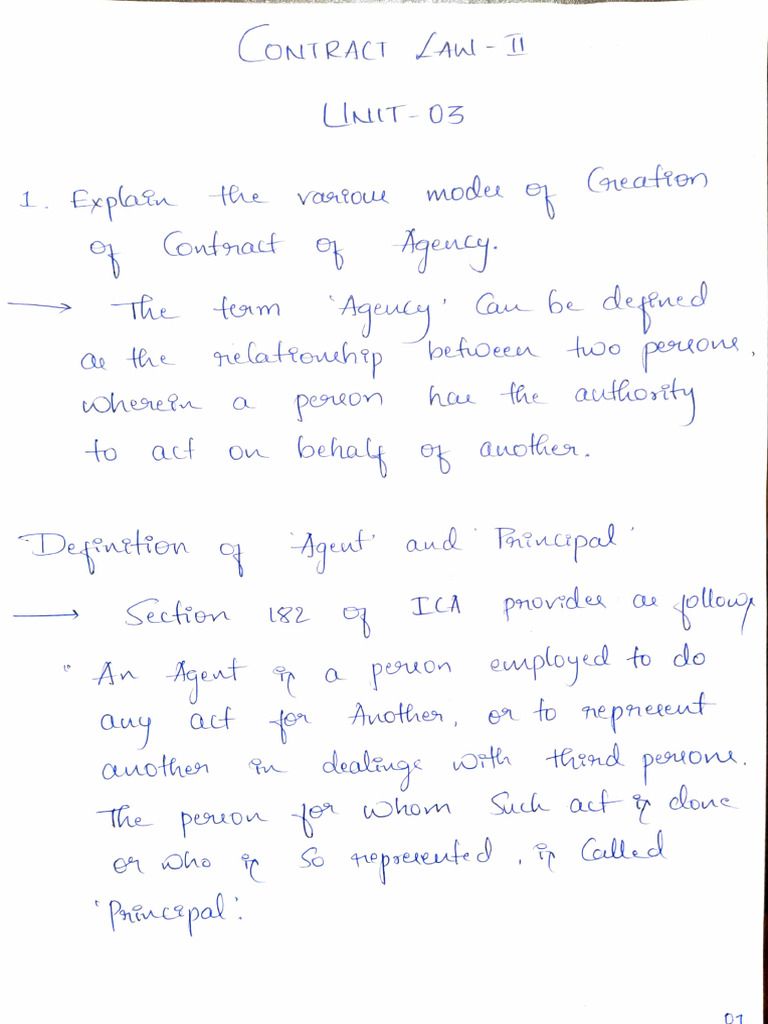 CONTRACT LAW - II
UNIT - 03
1. Explain the various modes of Creation
of Contract of Agency.
→ The term 'Agency' Can be defined
as the relationship between two persons,
wherein a person has the authority
to act on behalf of another.
Definition of 'Agent' and 'Principal'
→ Section 182 of ICA provides as follows,
"An Agent is a person employed to do
any act for Another, or to represent
another in dealings with third persons.
The person for whom Such act is done
or who is so represented, is Called
'Principal'.
01